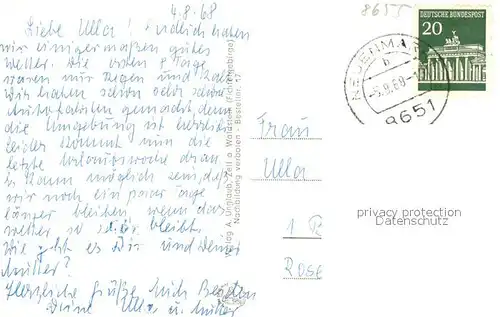 4.8.68
Liebe Ulla! Endlich haben
wir einigermaßen gutes
Wetter. Die ersten 8 Tage
waren nur Regen und
Wir haben schon sehr schöne
Autofahrten gemacht, denn
die Umgebung ist herrlich
leider kommt nun die
letzte Urlaubswoche dran
Es kann möglich sein, daß
wir noch ein paar Tage
länger bleiben wenn das
Wetter so schön bleibt.
Wie geht es Dir und Deiner
Mutter?
Herzliche Grüße
Deine u. Mutter
Verlag A. Unglaub, Zell a. Waldstein (Fichtelgebirge)
Nachbildung verboten - Bestellnr. 17
8655
DEUTSCHE BUNDESPOST
20
NEUENMARKT
b
-5.8.68
8651
Frau
Ulla
1
Rose
privacy protection
Datenschutz